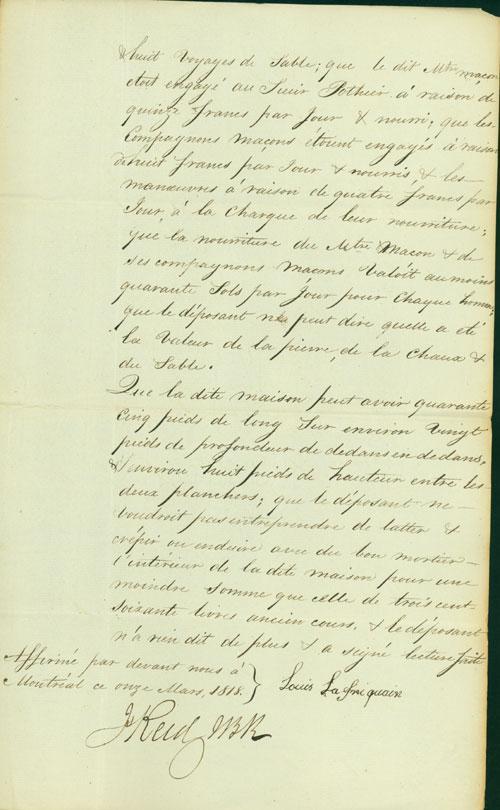 & huit Voyages de Sable; que le dit Mtre maçon
étoit engagé au Sieur Pothier à raison de
quinze francs par Jour & nourri; que les
Compagnons maçons étoient engagés à raison
de huit francs par Jour & nourris, & les
manœuvres à raison de quatre francs par
Jour, à la charque de leur nourriture;
que la nourriture du Mtre Macon & de
ses compagnons macons Valoit au moins
quarante Sols par Jour pour chaque homme;
que le déposant ne peut dire quelle a été
la Valeur de la pierre, de la chaux &
du Sable.
Que la dite maison peut avoir quarante
Cinq pieds de long Sur environ Vingt
pieds de profondeur de dedans en dedans,
& d'environ huit pieds de hauteur entre les
deux planchers; que le déposant ne
voudroit pas entreprendre de latter &
crépir ou enduire avec du bon mortier
l'intérieur de la dite maison pour une
moindre somme que celle de trois cent
soixante livres ancien cours. & le déposant
n'a rien dit de plus & a signé lecture faite
Affirmé par devant nous à
Montréal ce onze Mars, 1818. } Louis
J Reid JBR